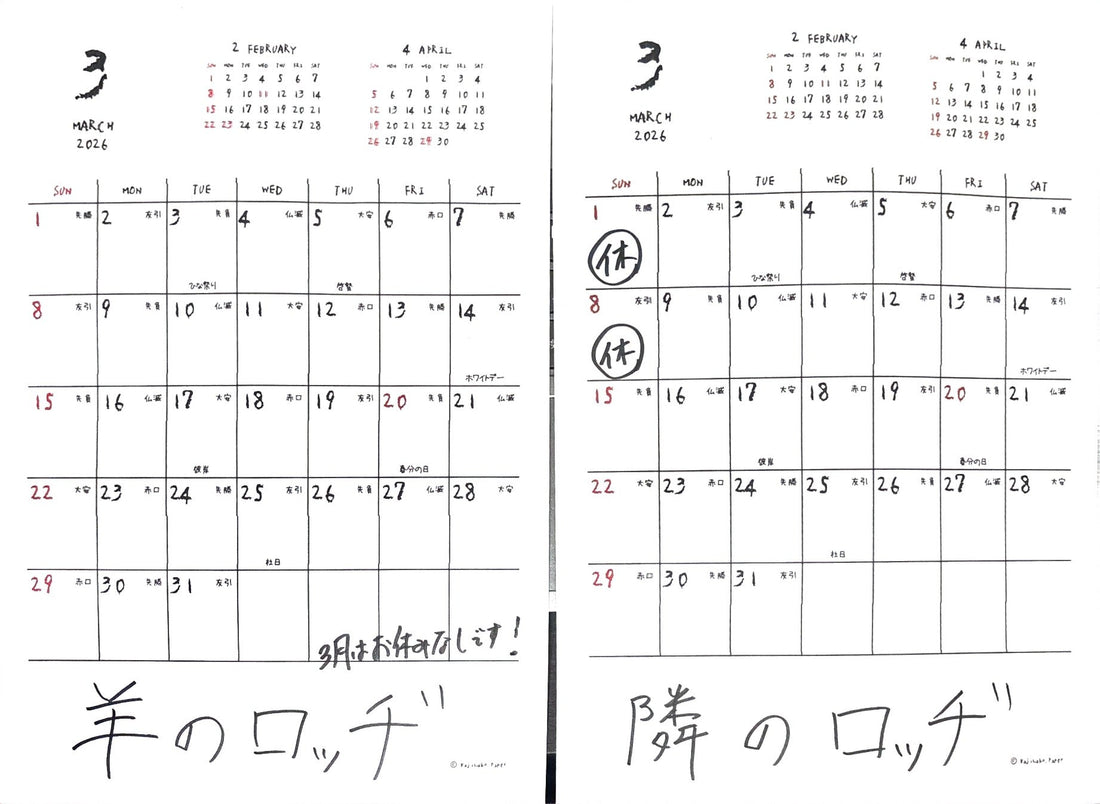 3
MARCH
2026
2 FEBRUARY
SUN MON TUE WED THU FRI SAT
1 2 3 4 5 6 7
8 9 10 11 12 13 14
15 16 17 18 19 20 21
22 23 24 25 26 27 28
4 APRIL
SUN MON TUE WED THU FRI SAT
1 2 3 4
5 6 7 8 9 10 11
12 13 14 15 16 17 18
19 20 21 22 23 24 25
26 27 28 29 30
SUN MON TUE WED THU FRI SAT
1 先勝 2 友引 3 先負 4 仏滅 5 大安 6 赤口 7 先勝
ひな祭り 啓蟄
8 友引 9 先負 10 仏滅 11 大安 12 赤口 13 先勝 14 友引
ホワイトデー
15 先負 16 仏滅 17 大安 18 赤口 19 友引 20 先負 21 仏滅
彼岸 春分の日
22 大安 23 赤口 24 先勝 25 友引 26 先負 27 仏滅 28 大安
社日
29 赤口 30 先勝 31 友引
3月はお休みなしです!
羊のロッヂ
3
MARCH
2026
2 FEBRUARY
SUN MON TUE WED THU FRI SAT
1 2 3 4 5 6 7
8 9 10 11 12 13 14
15 16 17 18 19 20 21
22 23 24 25 26 27 28
4 APRIL
SUN MON TUE WED THU FRI SAT
1 2 3 4
5 6 7 8 9 10 11
12 13 14 15 16 17 18
19 20 21 22 23 24 25
26 27 28 29 30
SUN MON TUE WED THU FRI SAT
1 先勝 2 友引 3 先負 4 仏滅 5 大安 6 赤口 7 先勝
休
ひな祭り 啓蟄
8 友引 9 先負 10 仏滅 11 大安 12 赤口 13 先勝 14 友引
休
ホワイトデー
15 先負 16 仏滅 17 大安 18 赤口 19 友引 20 先負 21 仏滅
彼岸 春分の日
22 大安 23 赤口 24 先勝 25 友引 26 先負 27 仏滅 28 大安
社日
29 赤口 30 先勝 31 友引
隣のロッヂ